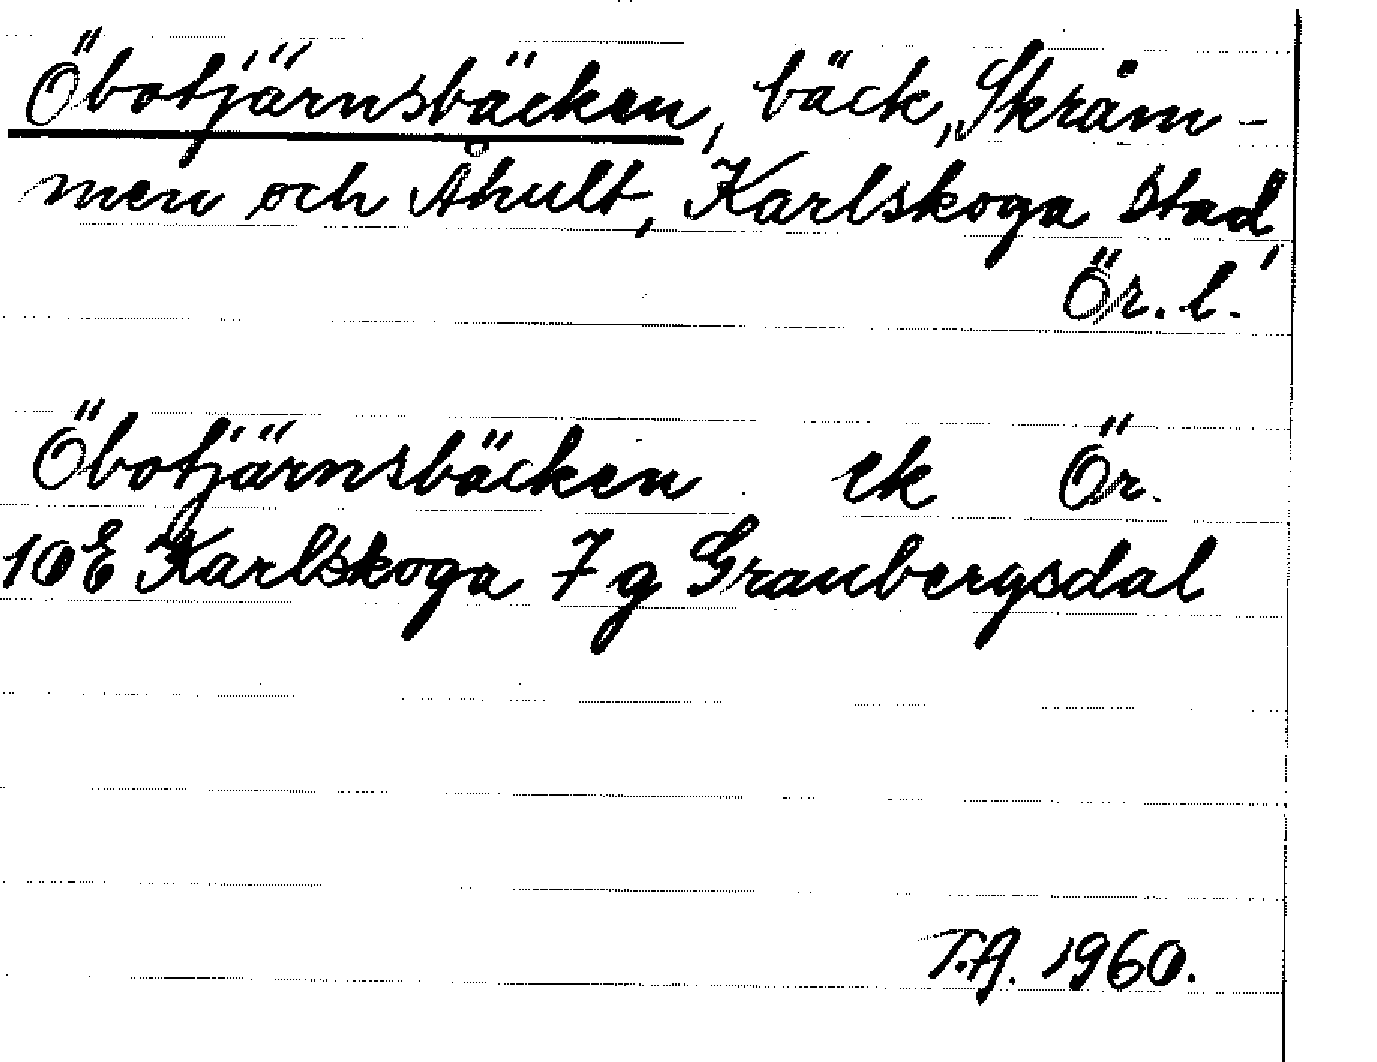 Öbotjärnsbäcken, bäck, Skråm-
men och Åhult, Karlskoga stad,
Ör. l.
Öbotjärnsbäcken ek Ör.
10E Karlskoga 7g Granbergsdal
T.A. 1960.